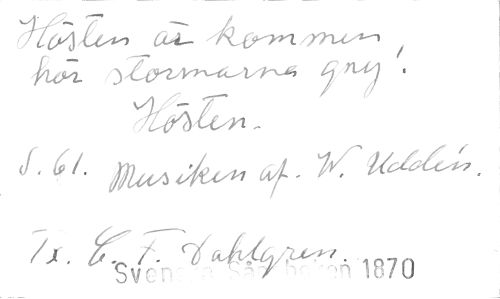 Hösten är kommen,
hör stormarna gny!
Hösten.
S. 61. Musiken af. W. Uddén.
Tx. C. F. Dahlgren.
Svenska Sångboken 1870